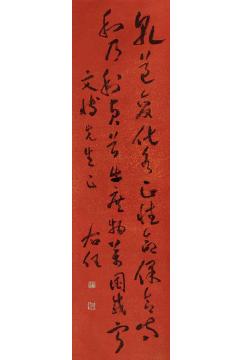 乾道變化各正性命保合太
和乃利貞首出庶物萬國咸寧
文博先生正
右任